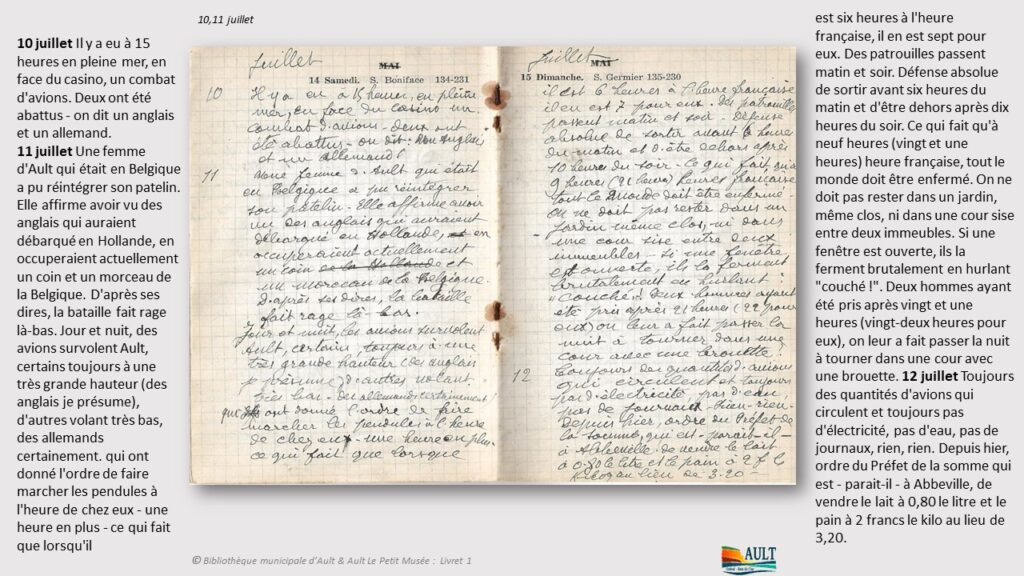 10,11 juillet
10 juillet Il y a eu à 15
heures en pleine mer, en
face du casino, un combat
d'avions. Deux ont été
abattus - on dit un anglais
et un allemand.
11 juillet Une femme
d'Ault qui était en Belgique
a pu réintégrer son patelin.
Elle affirme avoir vu des
anglais qui auraient
débarqué en Hollande, en
occuperaient actuellement
un coin et un morceau de
la Belgique. D'après ses
dires, la bataille fait rage
là-bas. Jour et nuit, des
avions survolent Ault,
certains toujours à une
très grande hauteur (des
anglais je présume),
d'autres volant très bas,
des allemands
certainement. qui ont
donné l'ordre de faire
marcher les pendules à
l'heure de chez eux - une
heure en plus - ce qui fait
que lorsqu'il
Juillet
MAI
14 Samedi. S. Boniface 134-231
10 Il y a eu à 15 heures, en pleine
mer, en face du casino un
combat d'avions - deux ont
été abattus - on dit : un anglais
et un allemand !
11 Une femme d'Ault qui était
en Belgique a pu réintégrer
son patelin - Elle affirme avoir
vu des anglais qui auraient
débarqué en Hollande, en
occuperaient actuellement
un coin de la Hollande et
un morceau de la Belgique
d'après ses dires, la bataille
fait rage là-bas.
Jour et nuit, les avions survolent
Ault, certains toujours à une
très grande hauteur (des anglais
je présume) d'autres volant
très bas - des allemands certainement !
qui ont donné l'ordre de faire
marcher les pendules à l'heure
de chez eux - une heure en plus -
ce qui fait que lorsque
Juillet
MAI
15 Dimanche. S. Germier 135-230
il est 6 heures à l'heure française
il en est 7 pour eux. Des patrouilles
passent matin et soir - Défense
absolue de sortir avant 6 heures
du matin et d'être dehors après
10 heures du soir - Ce qui fait qu'à
9 heures (21 heures) heures française
tout le monde doit être enfermé -
On ne doit pas rester dans un
jardin même clos, ni dans
une cour sise entre deux
immeubles - si une fenêtre
est ouverte, ils la ferment
brutalement en hurlant :
"Couché" ! Deux hommes ayant
été pris après 21 heures (22 pour
eux) on leur a fait passer la
nuit à tourner dans une
cour avec une brouette !
12 Toujours des quantités d'avions
qui circulent et toujours
pas d'électricité, pas d'eau,
pas de journaux - rien - rien -
Depuis hier, ordre du Préfet de
la Somme, qui est - parait-il -
à Abbeville - de vendre le lait
à 0.80 le litre et le pain à 2 f le
kilog au lieu de 3.20 -
est six heures à l'heure
française, il en est sept pour
eux. Des patrouilles passent
matin et soir. Défense absolue
de sortir avant six heures du
matin et d'être dehors après dix
heures du soir. Ce qui fait qu'à
neuf heures (vingt et une
heures) heure française, tout le
monde doit être enfermé. On ne
doit pas rester dans un jardin,
même clos, ni dans une cour sise
entre deux immeubles. Si une
fenêtre est ouverte, ils la
ferment brutalement en hurlant
"couché !". Deux hommes ayant
été pris après vingt et une
heures (vingt-deux heures pour
eux), on leur a fait passer la nuit
à tourner dans une cour avec
une brouette. 12 juillet Toujours
des quantités d'avions qui
circulent et toujours pas
d'électricité, pas d'eau, pas de
journaux, rien, rien. Depuis hier,
ordre du Préfet de la somme qui
est - parait-il - à Abbeville, de
vendre le lait à 0,80 le litre et le
pain à 2 francs le kilo au lieu de
3,20.
© Bibliothèque municipale d'Ault & Ault Le Petit Musée : Livret 1
AULT